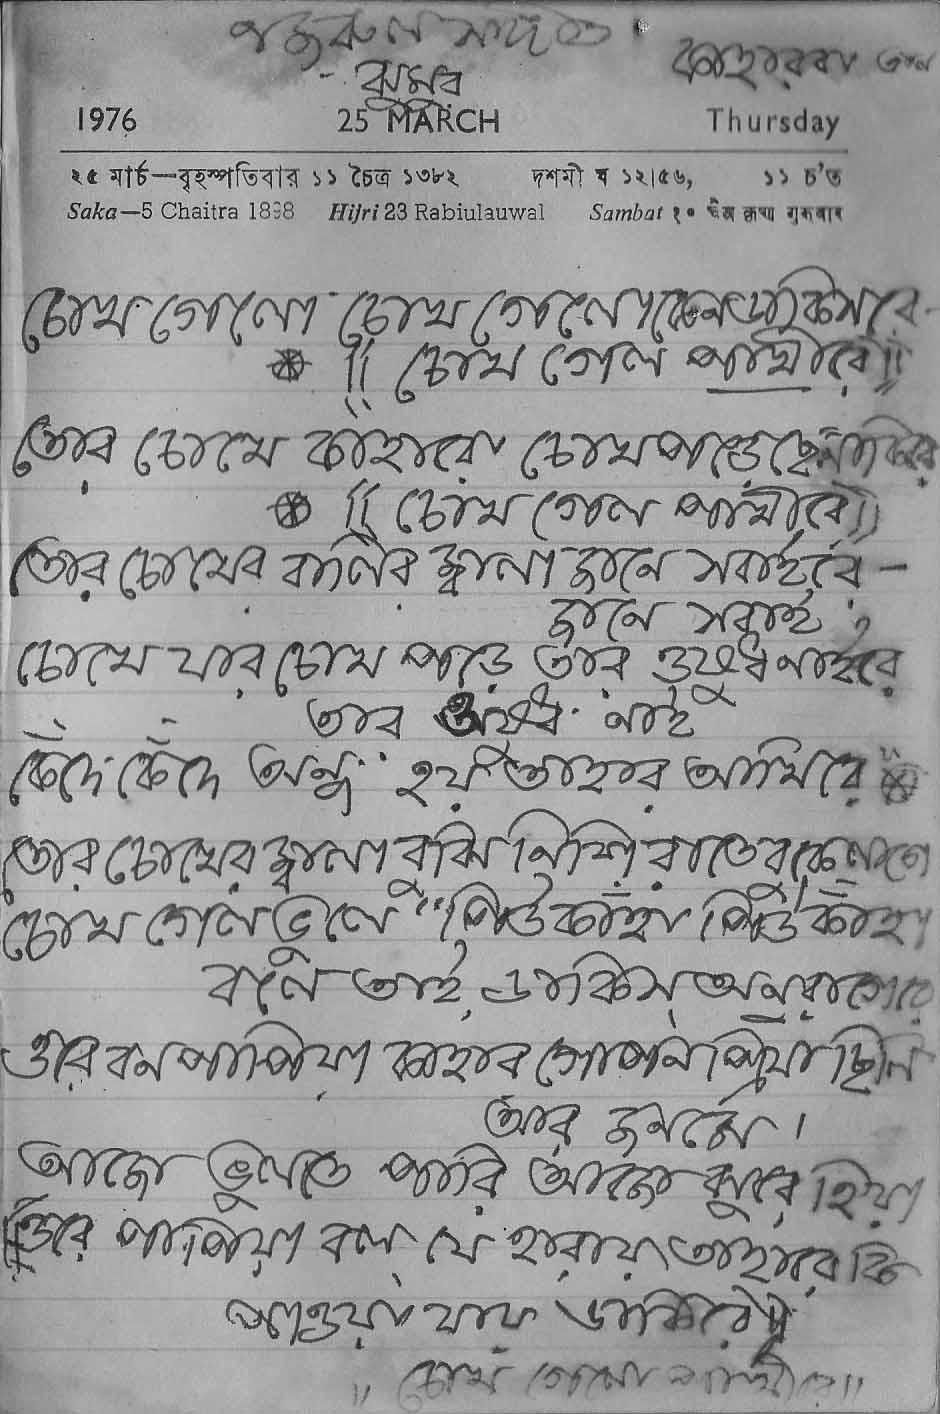 নজরুল সংগীত
কাহারবা তাল
ঝুমুর
1976 25 MARCH Thursday
২৫ মার্চ—বৃহস্পতিবার ১১ চৈত্র ১৩৮২ দশমী ঘ ১২।৫৬, ১১ চ'ত
Saka—5 Chaitra 1898 Hijri 23 Rabiulauwal Sambat १० चैत्र कृष्ण गुरुवार
চোখ গেলো চোখ গেলো কেন ডাকিস রে-
॥ চোখ গেল পাখীরে॥
তোর চোখে কাহারো চোখ পড়েছে নাকিরে
॥ চোখ গেল পাখীরে॥
তোর চোখের বালির জ্বালা জানে সবাইরে —
জানে সবাই
চোখে যার চোখ পড়ে তার ওষুধ নাইরে
তার ওষুধ নাই
কেঁদে কেঁদে অন্ধ হয় তাহার আখিরে
তোর চোখের জ্বালা বুঝি নিশি রাতে বুকে লাগে
চোখ গেল ভুলে "পিউকাঁহা পিউকাঁহা
বলে তাই ডাকিস্ অনুরাগেরে
ওরে বন পাপিয়া কাহার গোপন প্রিয়া ছিলি
আর জনমে।
আজো ভুলতে পারি আজো ঝুরে হিয়া
ওরে পাপিয়া বল্ যে হারায় তাহারে কি
পাওয়া যায় ডাকিরে
॥ চোখ গেলো পাখীরে॥